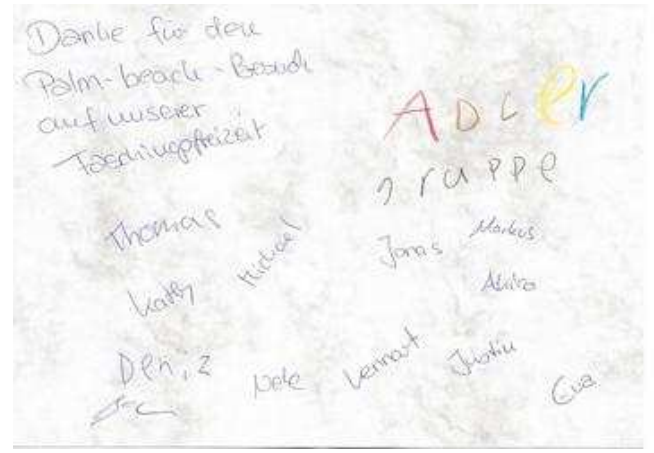 Danke für den
Palm-beach-Besuch
auf unserer
Faschingsfreizeit
ADLer
gruppe
Thomas
Michael
Jonas
Markus
Kathy
Akira
Deniz
Nele
Lennart
Justin
Eva